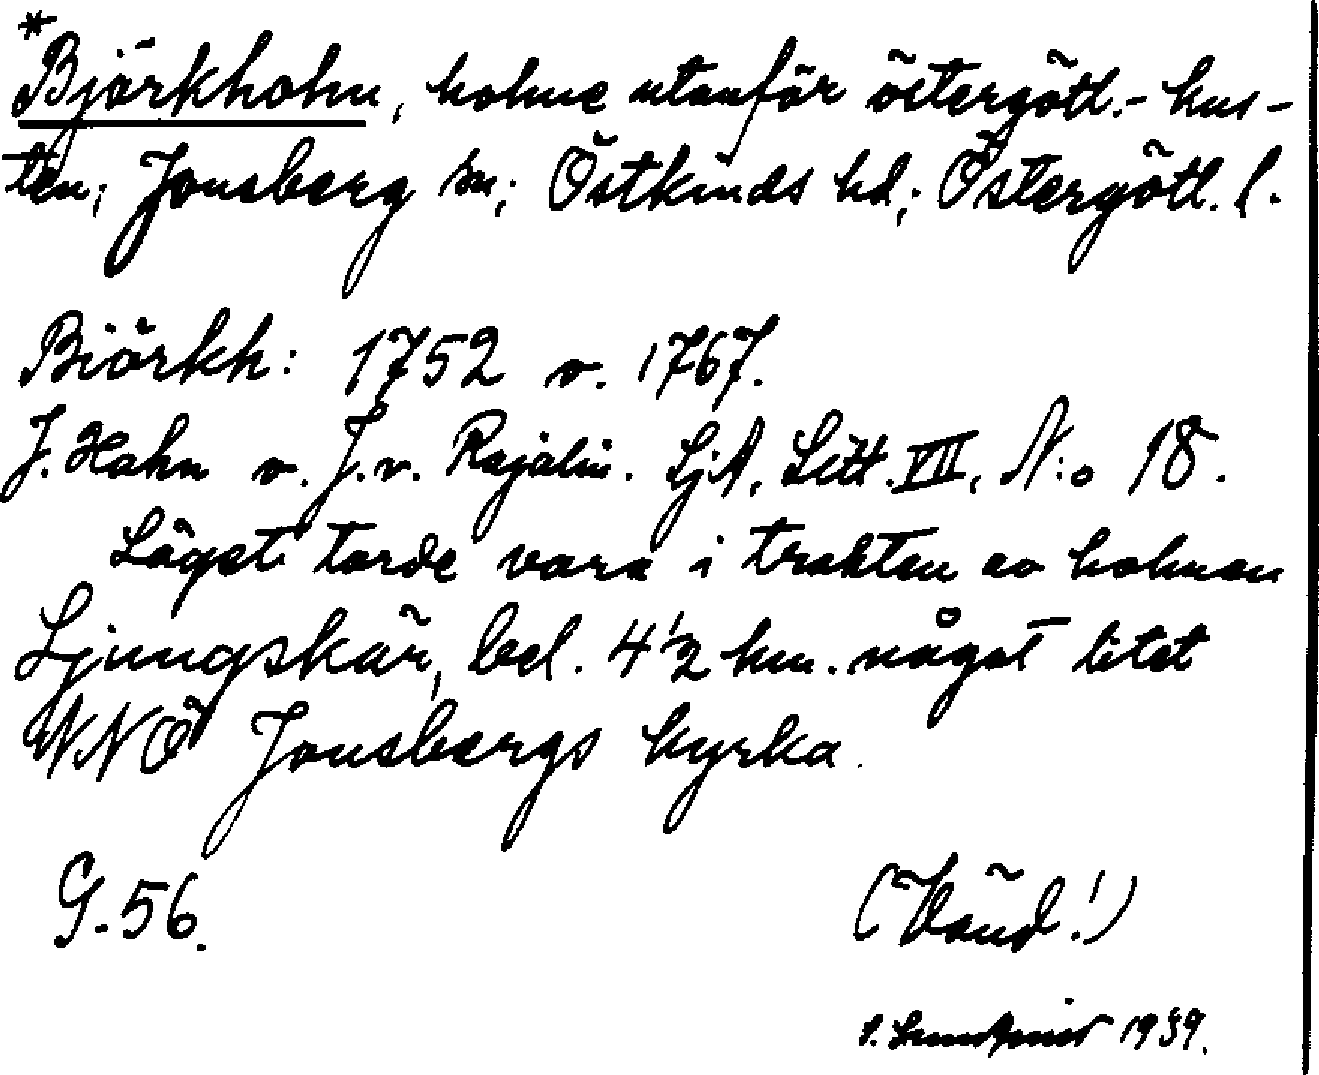 *Björkholm, holme utanför östergötl.-kus-
ten; Jonsberg sn; Östkinds hd; Östergötl. l.
Biörkh: 1752 o. 1767.
J. Hahn o. J. v. Rajalin. SjA, Litt. VII, N:o 18.
Läget torde vara i trakten av holmen
Ljungskär, bel. 4 1/2 km. något litet
NNÖ Jonsbergs kyrka.
G. 56. (Vänd!)
1939.